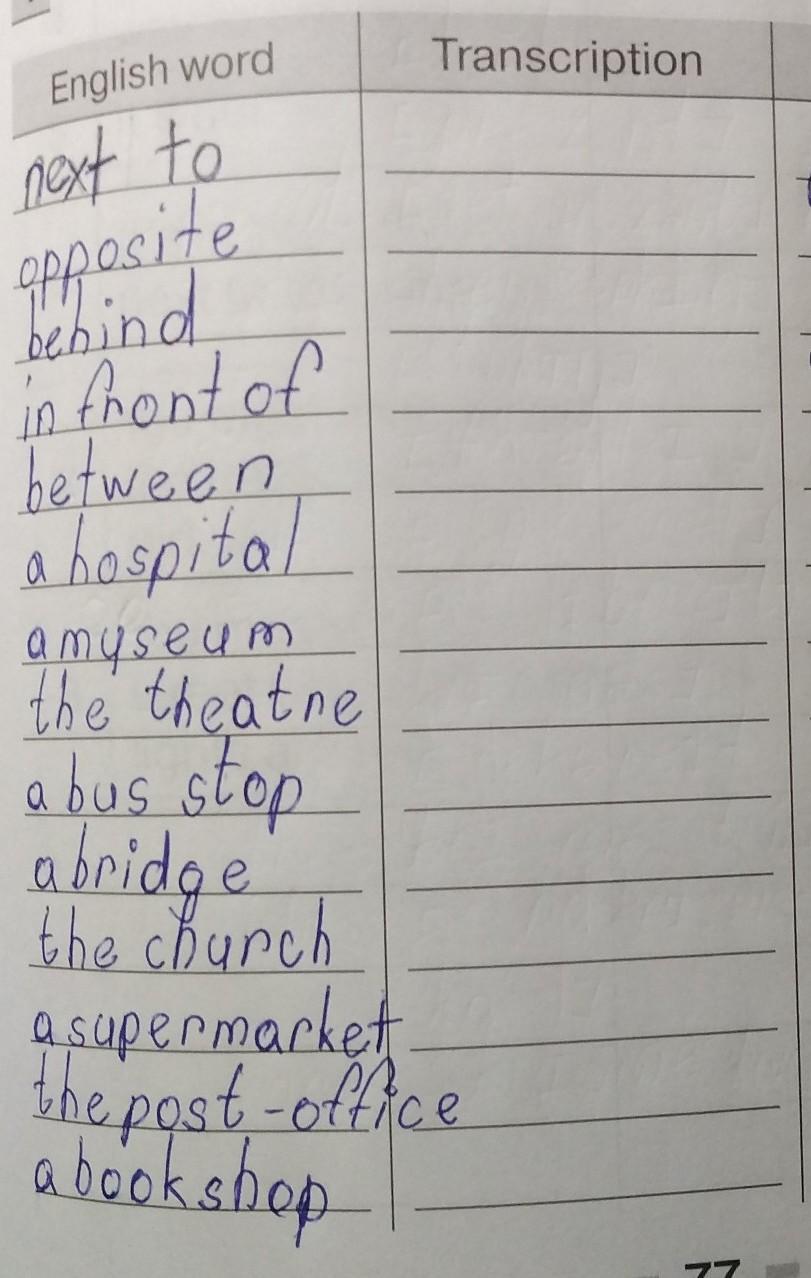 English word Transcription
next to
opposite
behind
in front of
between
a hospital
a myseum
the theatre
a bus stop
a bridge
the church
a supermarket
the post-office
a bookshop
77